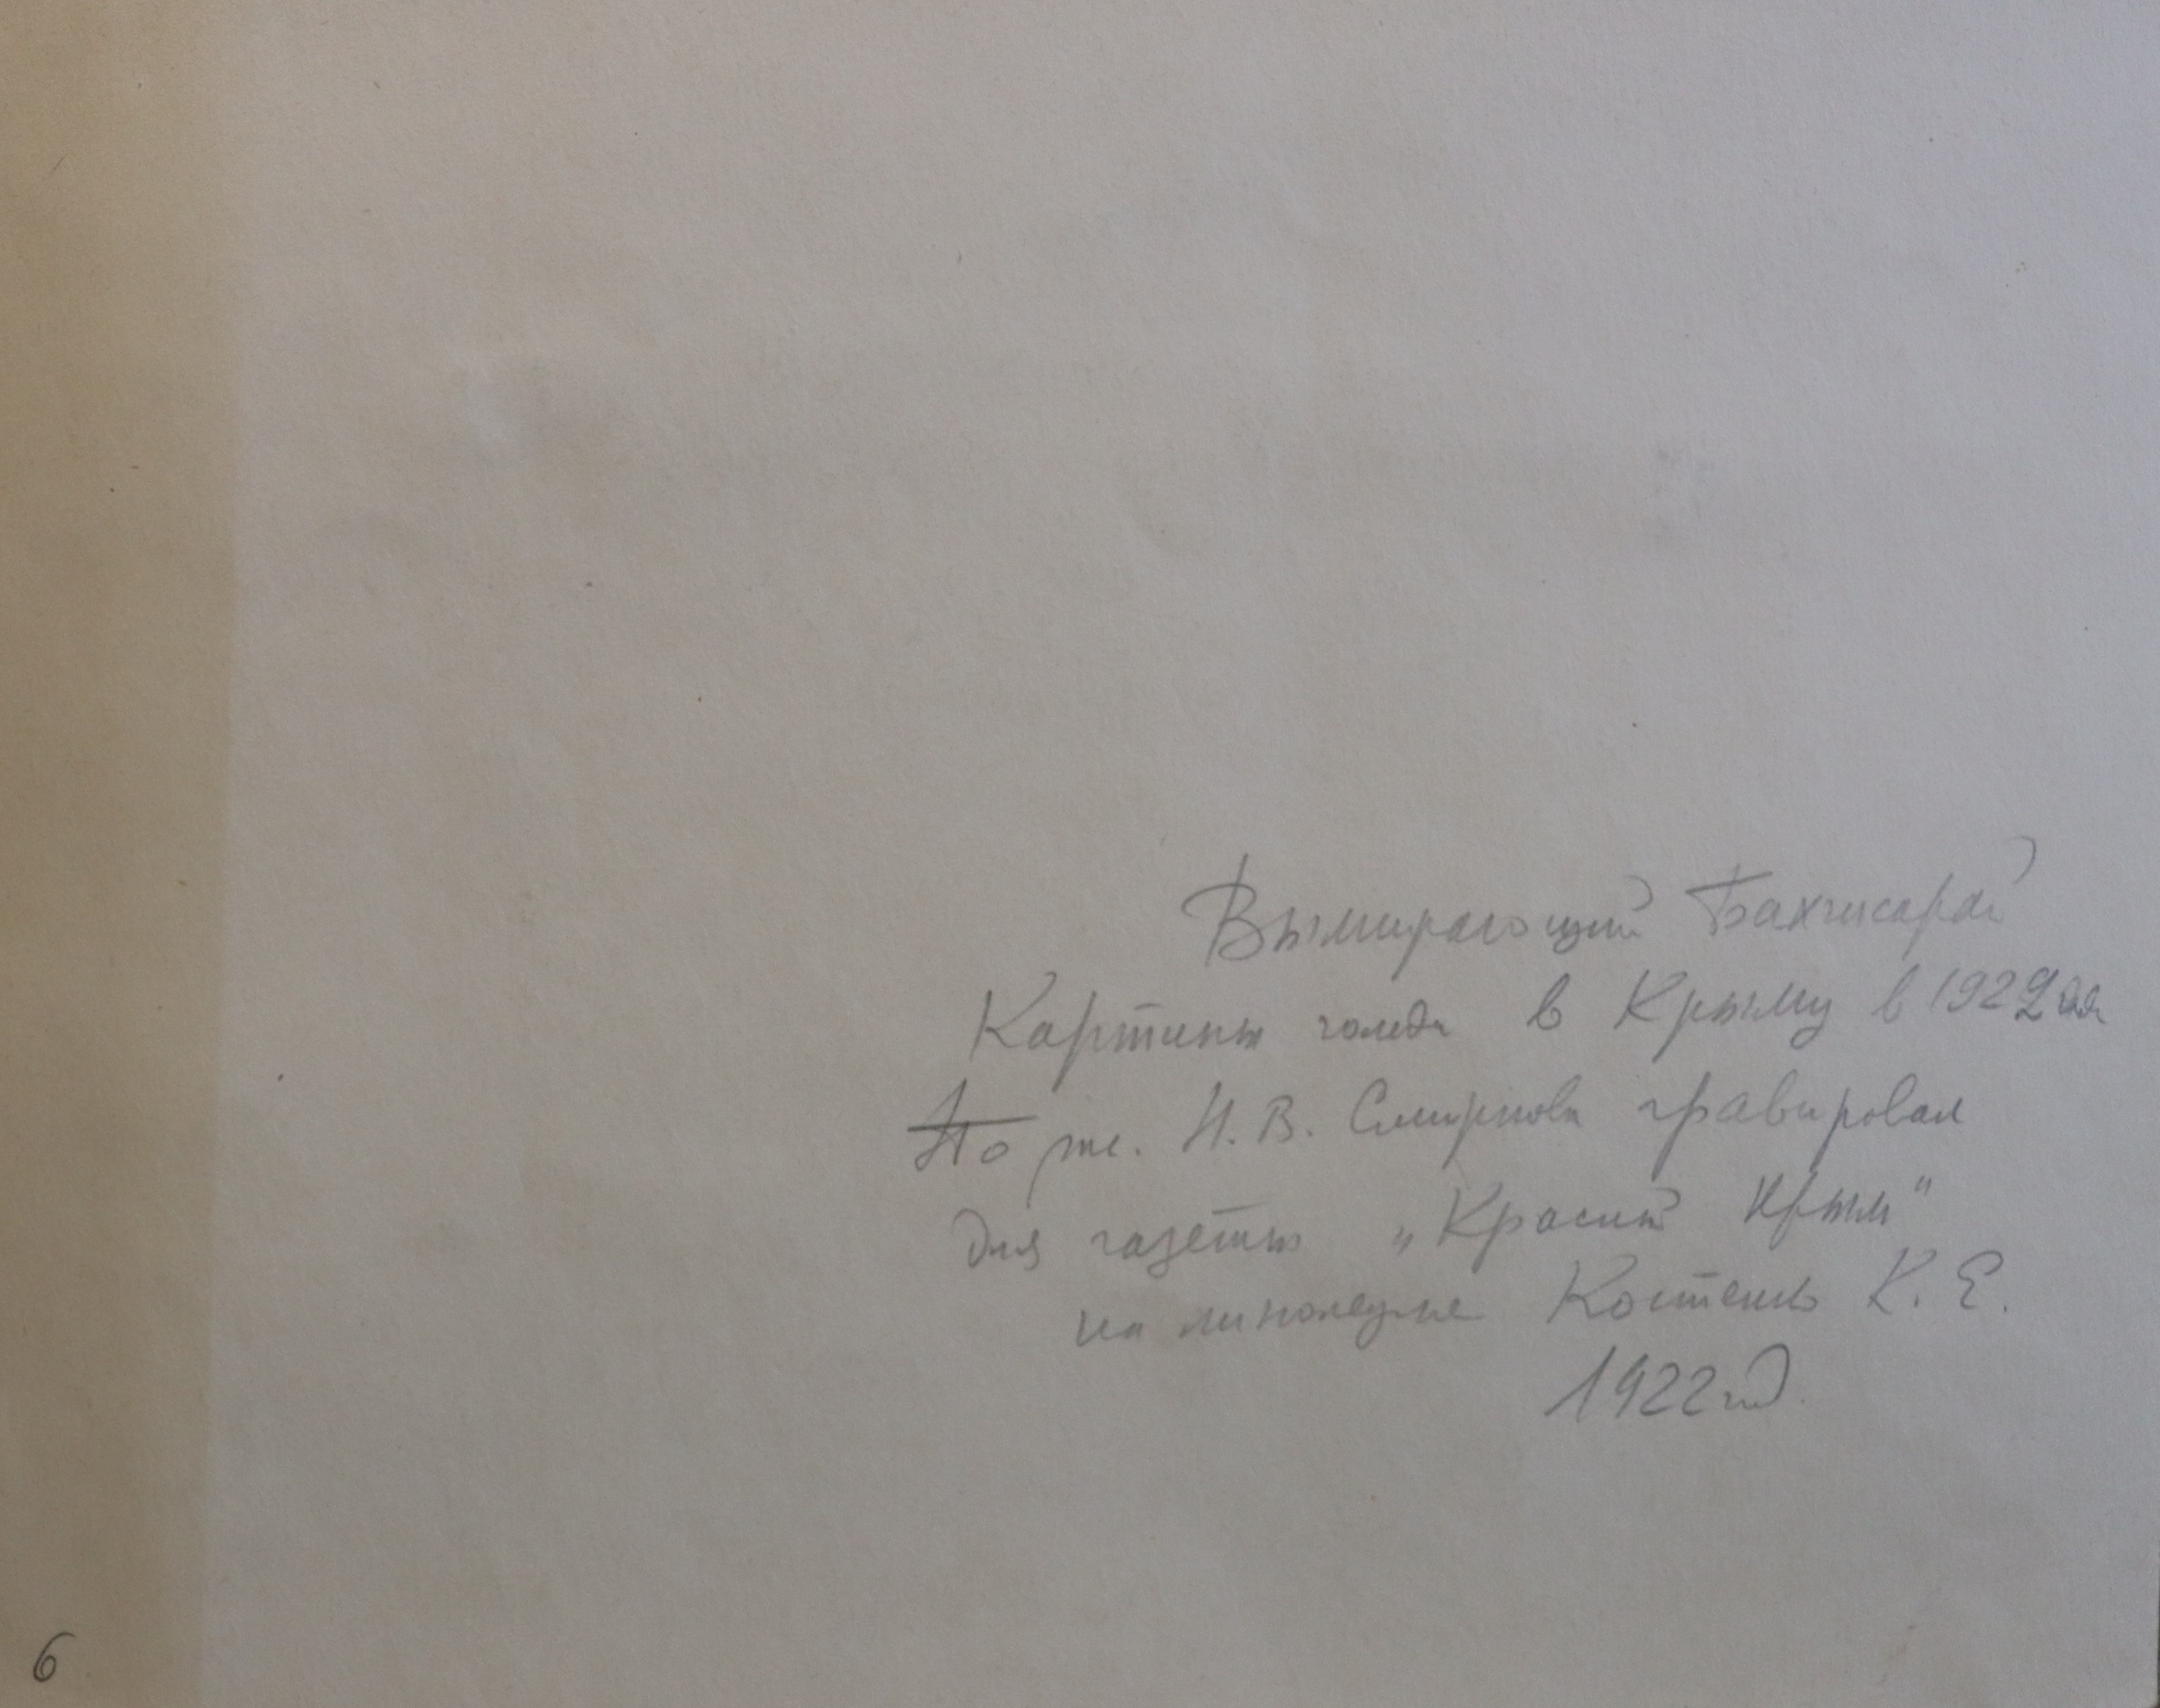 Вымирающий Бахчисарай
Картины голода в Крыму в 1922
По рис. Н. В. Смирнова гравировал
для газеты „Красный Крым"
на линолеуме Костенко К. Е.
1922 год.
6